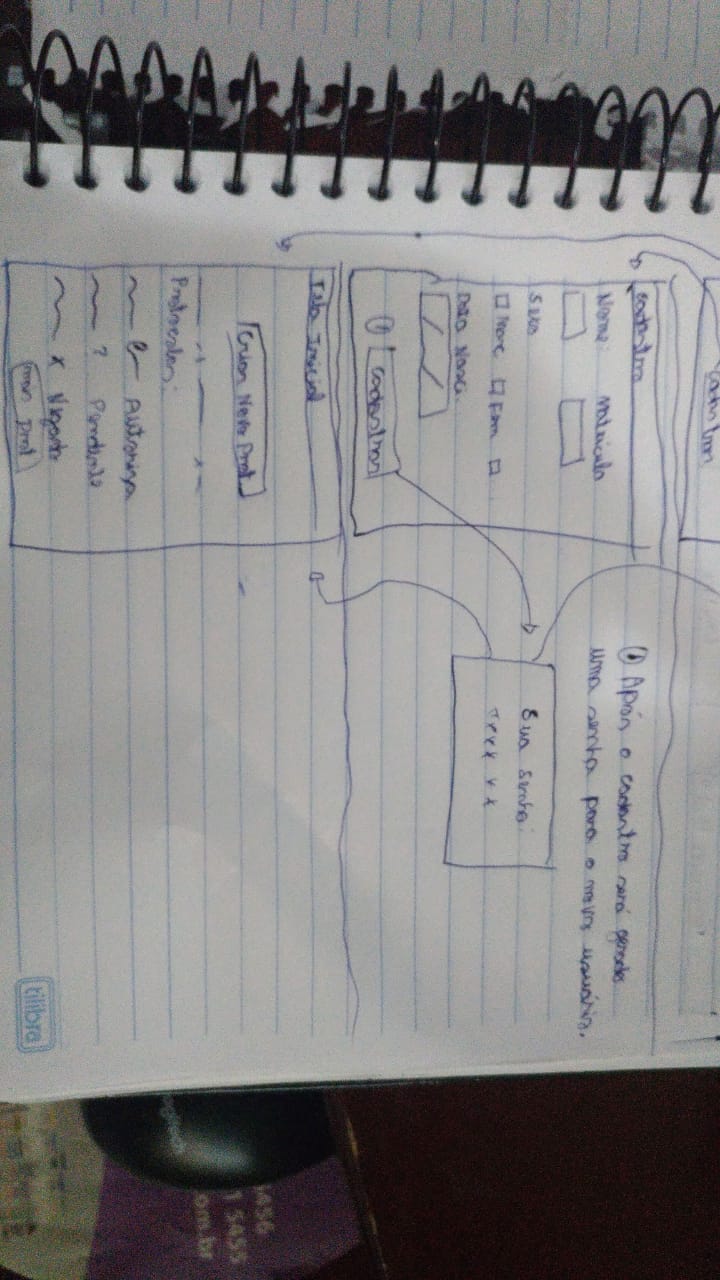 cadastrar
cadastro
Nome: Matricula
Sexo
Masc Fem
Data Nasci.
! cadastrar
! Após o cadastro será gerado
uma senha para o novo usuário.
Sua senha:
Tela Inicial
Criar Novo Prot.
Protocolos:
Autoriza
? Pendente
x Negado
mais prot
tilibra
5456
1 5455
om.br
logitech